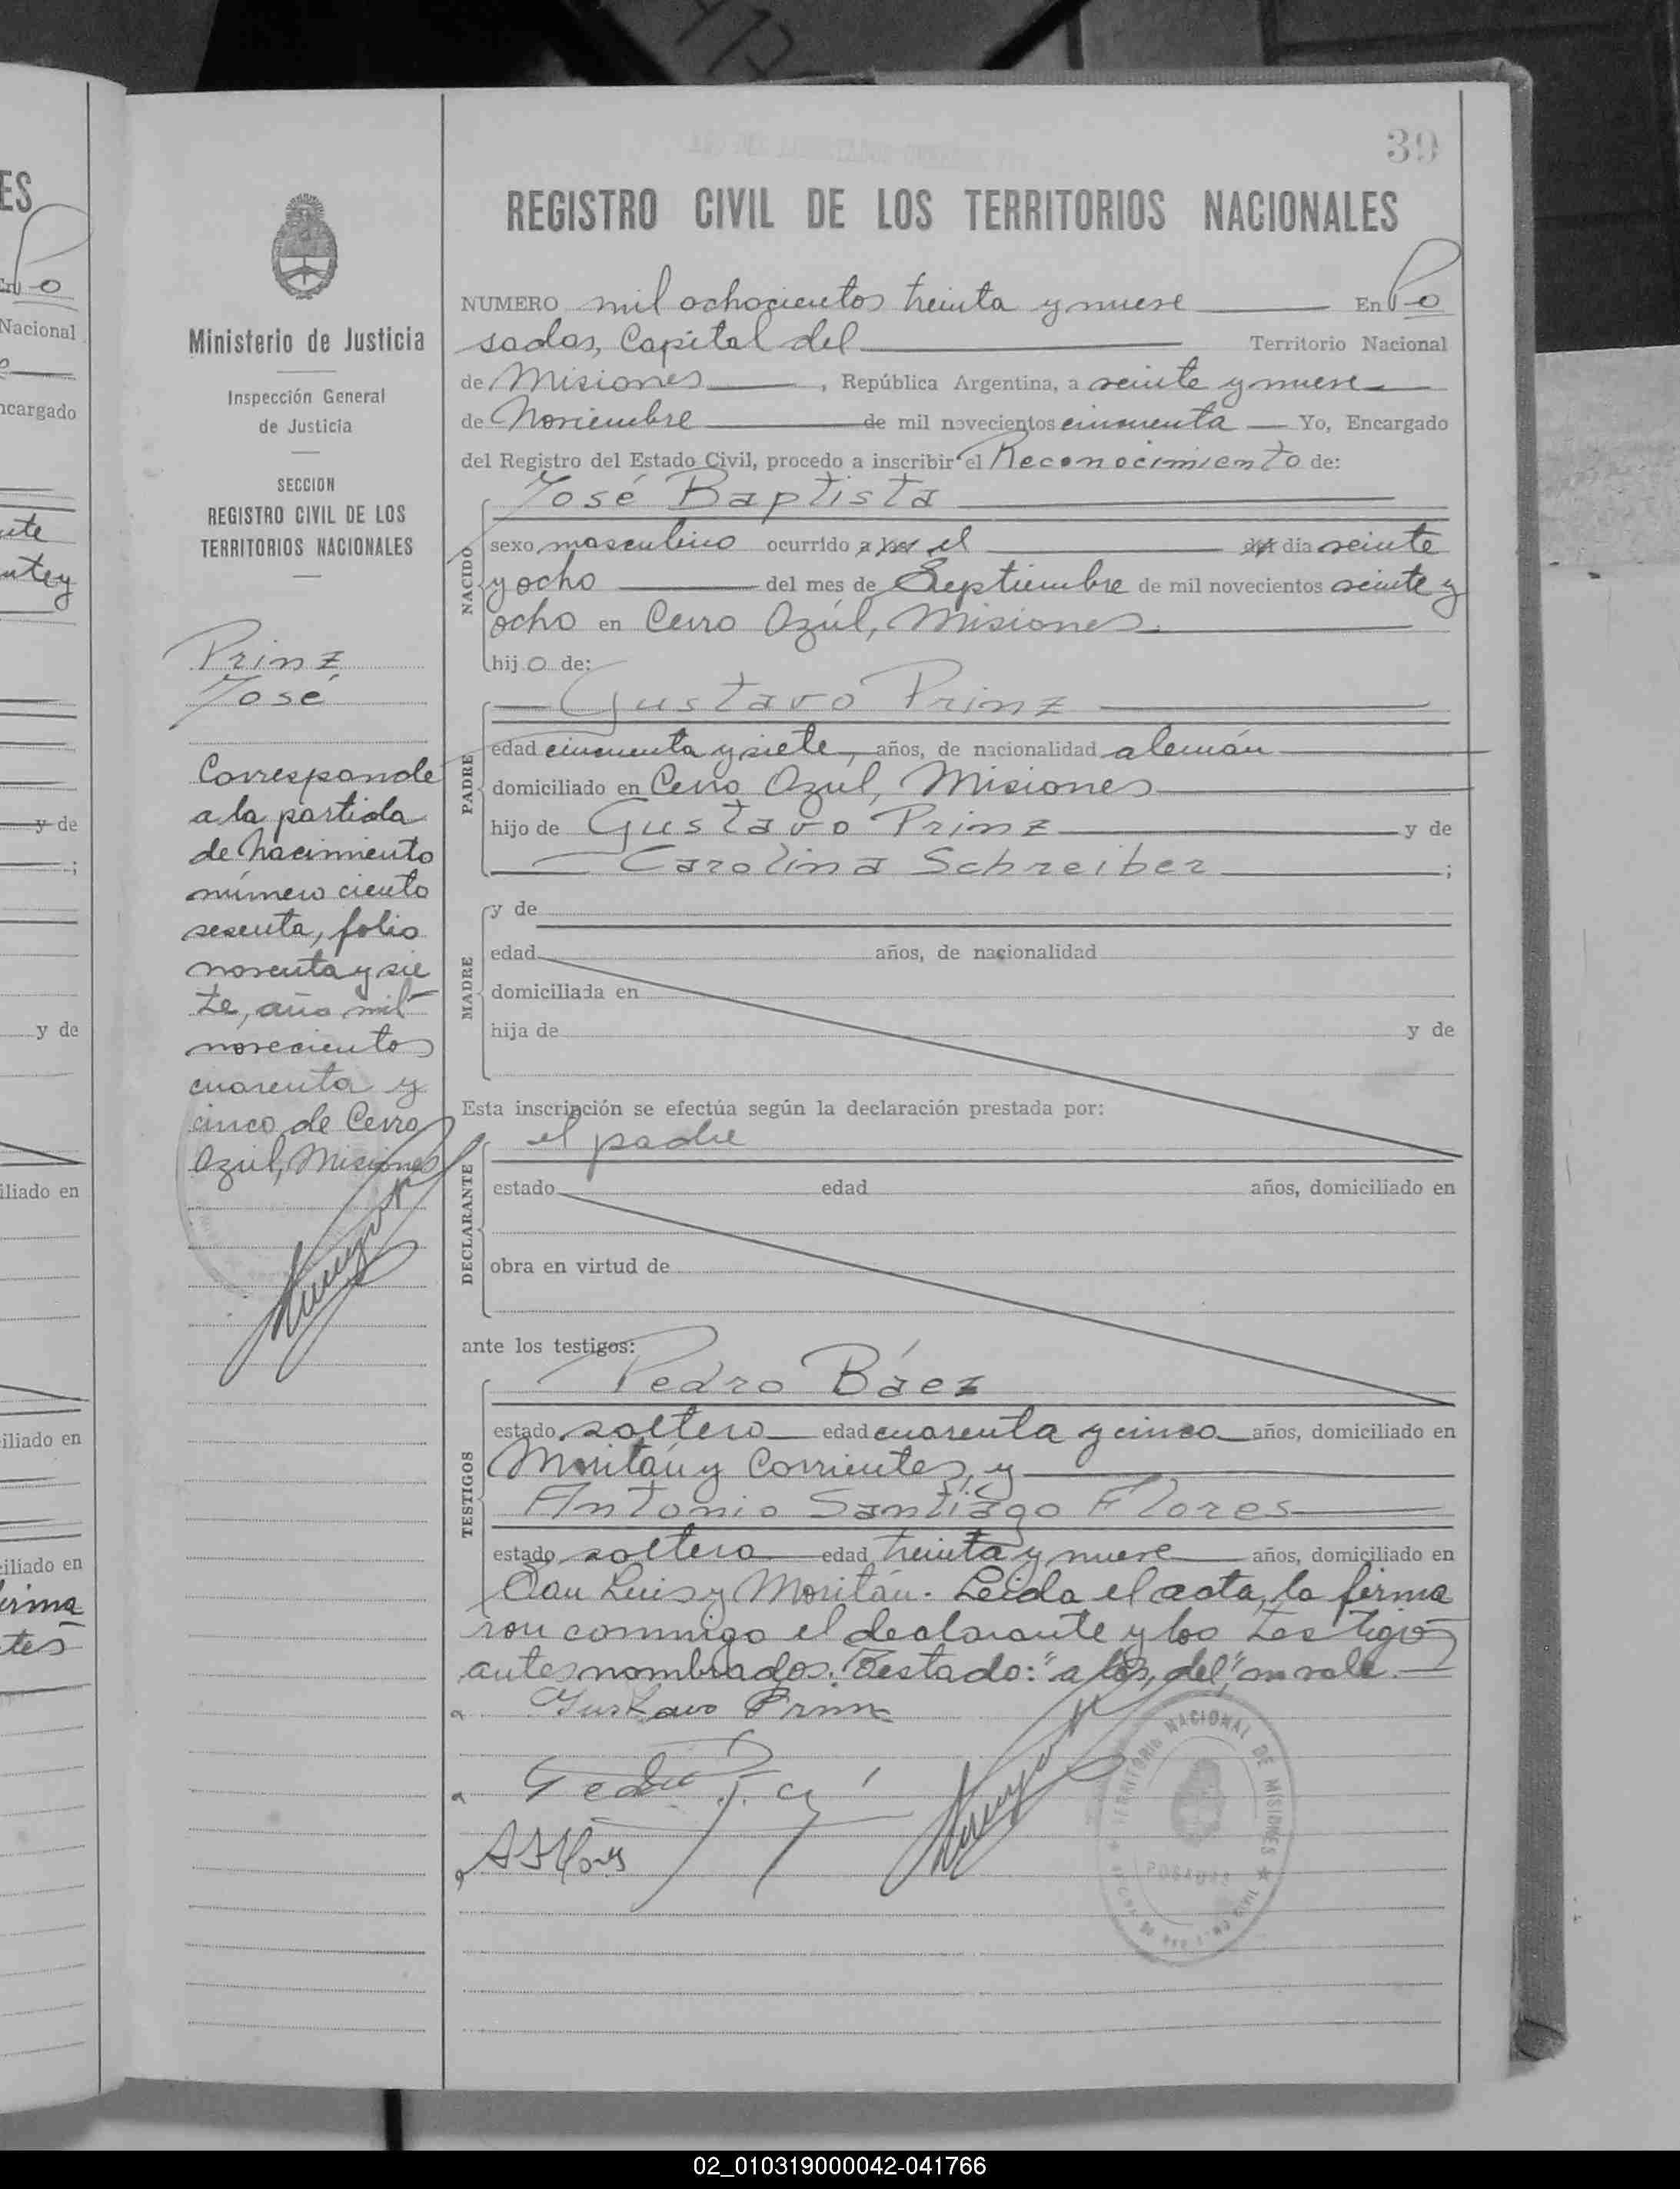 39
REGISTRO CIVIL DE LOS TERRITORIOS NACIONALES
Ministerio de Justicia
Inspección General
de Justicia
SECCION
REGISTRO CIVIL DE LOS
TERRITORIOS NACIONALES
Prinz
José
Corresponde
a la partida
de Nacimiento
número ciento
sesenta, folio
noventa y sie
te, año mil
novecientos
cuarenta y
cinco de Cerro
Azúl, Misiones
NUMERO mil ochocientos treinta y nueve En Po
sadas, Capital del Territorio Nacional
de Misiones, República Argentina, a veinte y nueve
de Noviembre de mil novecientos cincuenta Yo, Encargado
del Registro del Estado Civil, procedo a inscribir el Reconocimiento de:
José Baptista
NACIDO
sexo masculino ocurrido a las el del dia veinte
y ocho del mes de Septiembre de mil novecientos veinte y
ocho en Cerro Azúl, Misiones.
hijo de:
Gustavo Prinz
PADRE
edad cincuenta y siete, años, de nacionalidad alemán
domiciliado en Cerro Azul, Misiones
hijo de Gustavo Prinz y de
Carolina Schreiber ;
MADRE
y de
edad años, de nacionalidad
domiciliada en
hija de y de
Esta inscripción se efectúa según la declaración prestada por:
el padre
DECLARANTE
estado edad años, domiciliado en
obra en virtud de
ante los testigos:
Pedro Báez
TESTIGOS
estado soltero edad cuarenta y cinco años, domiciliado en
Moritán y Corrientes, y
Antonio Santiago Flores
estado soltero edad treinta y nueve años, domiciliado en
San Luis y Moritán. Leída el acta, la firma
ron conmigo el declarante y los testigos
antes nombrados. Testado: "a las, del", no vale.
Gustavo Prinz
ASFlores
TERRITORIO NACIONAL DE MISIONES
POSADAS
ES
En Po
Nacional
ncargado
y de
;
y de
iliado en
iliado en
iliado en
firma
tes
02_010319000042-041766